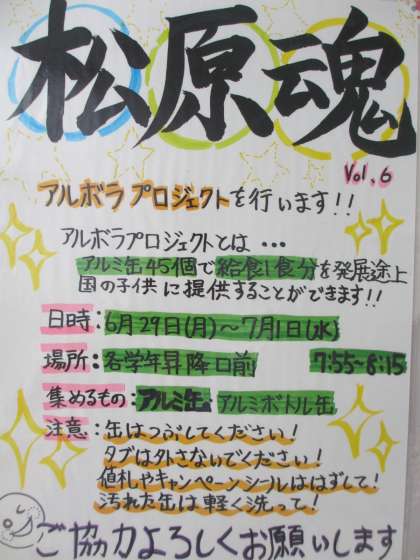 松原魂
Vol.6
アルボラプロジェクトを行います!!
アルボラプロジェクトとは…
アルミ缶45個で給食1食分を発展途上
国の子供に提供することができます!!
日時:6月29日(月)~7月1日(水)
場所:各学年昇降口前 7:55~8:15
集めるもの:アルミ缶、アルミボトル缶
注意:缶はつぶしてください!
タブは外さないでください!
値札やキャンペーンシールははずして!
汚れた缶は軽く洗って!
ご協力よろしくお願いします